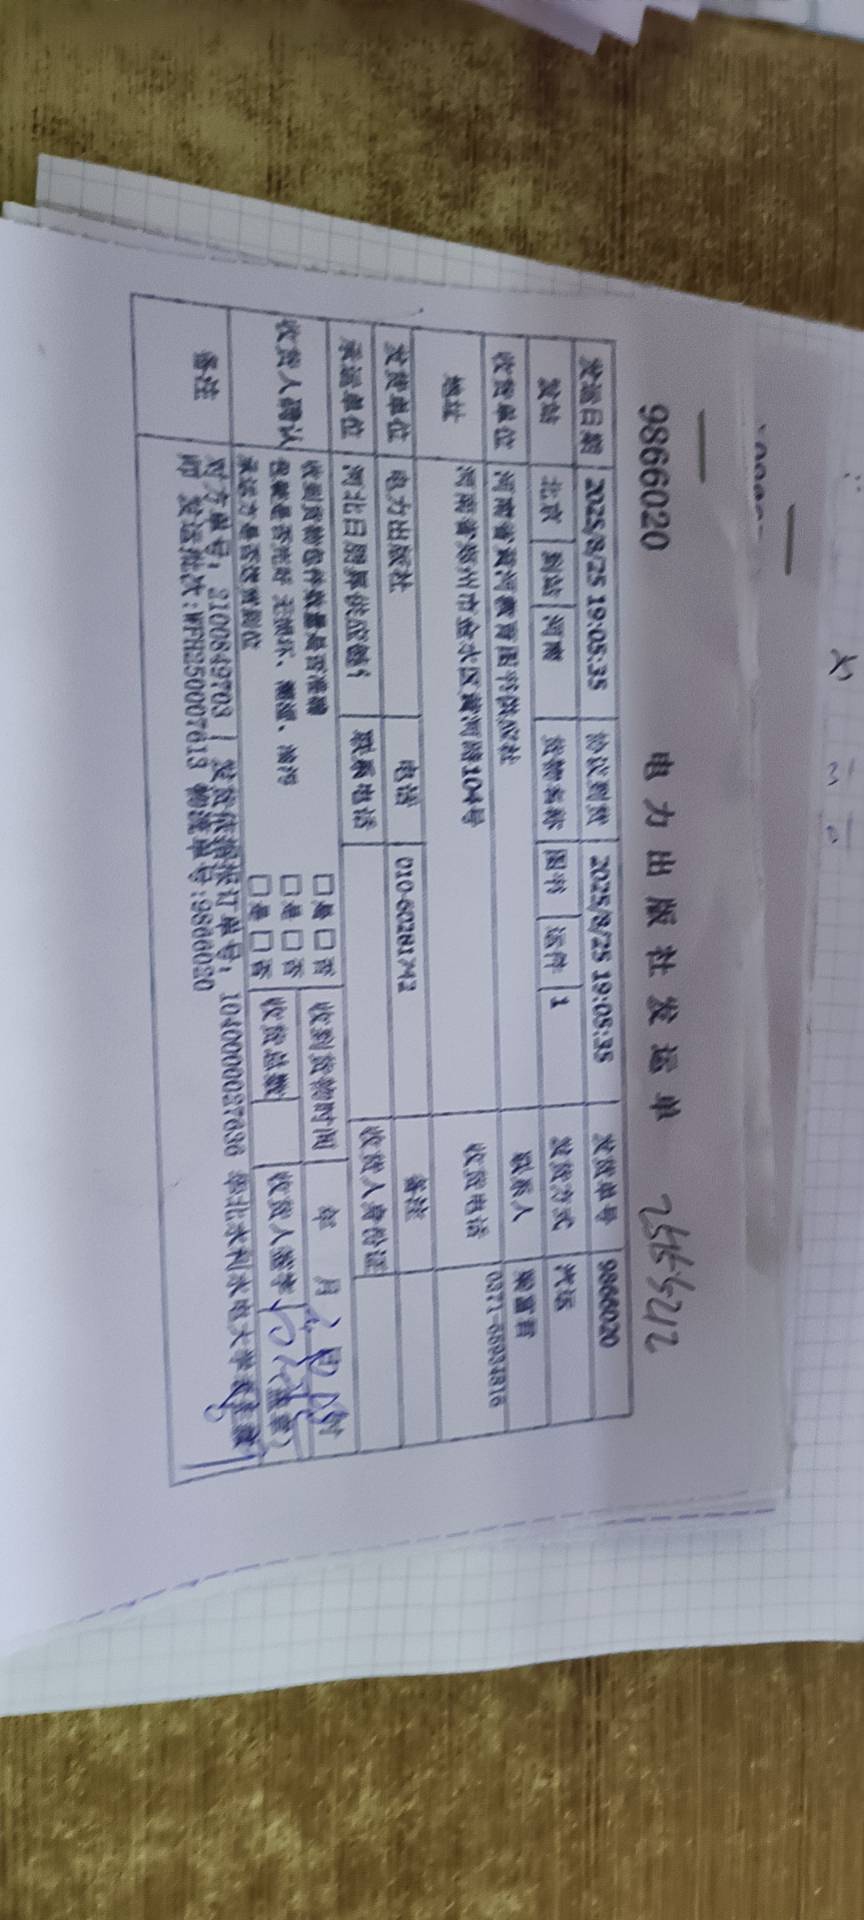 9866020 电力出版社发运单
发运日期 2025/8/25 19:05:35 协议到货 2025/8/25 19:05:35 发货单号 9866020
发站 北京 到站 河南 货物名称 图书 运件 1 发货方式 汽运
收货单位 河南省黄河教育图书供应社 联系人
地址 河南省郑州市金水区黄河路104号 收货电话
发货单位 电力出版社 电话 备注
承运单位 联系电话 收货人身份证
收货人确认 收到货物包件数量是否准确 □是□否 收到货物时间 年 月
包装是否完好 无损坏、潮湿、油污 □是□否 收货总数 收货人签字
承运方是否送货到位 □是□否
备注 对方单号: 华北水利水电大学
师 发运批次:WFH250007613 物流单号:9866020